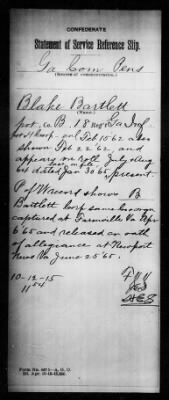 CONFEDERATE
Statement of Service Reference Slip.
Ga Com Pens
Blake Bartlett
(Name.)
pvt. Co B. 18 Regt Ga Inf
enl Feb 10 62 also
shown Feb 22 '62, and
appears on roll July & Aug
64 dated Jan 30 65, present
P of W record shows B
Bartlett Corp same Co organ
captured at Farmville Va Apr
6 '65 and released on oath
of allegiance at Newport
News Va June 25 '65.
10-12-15
1154